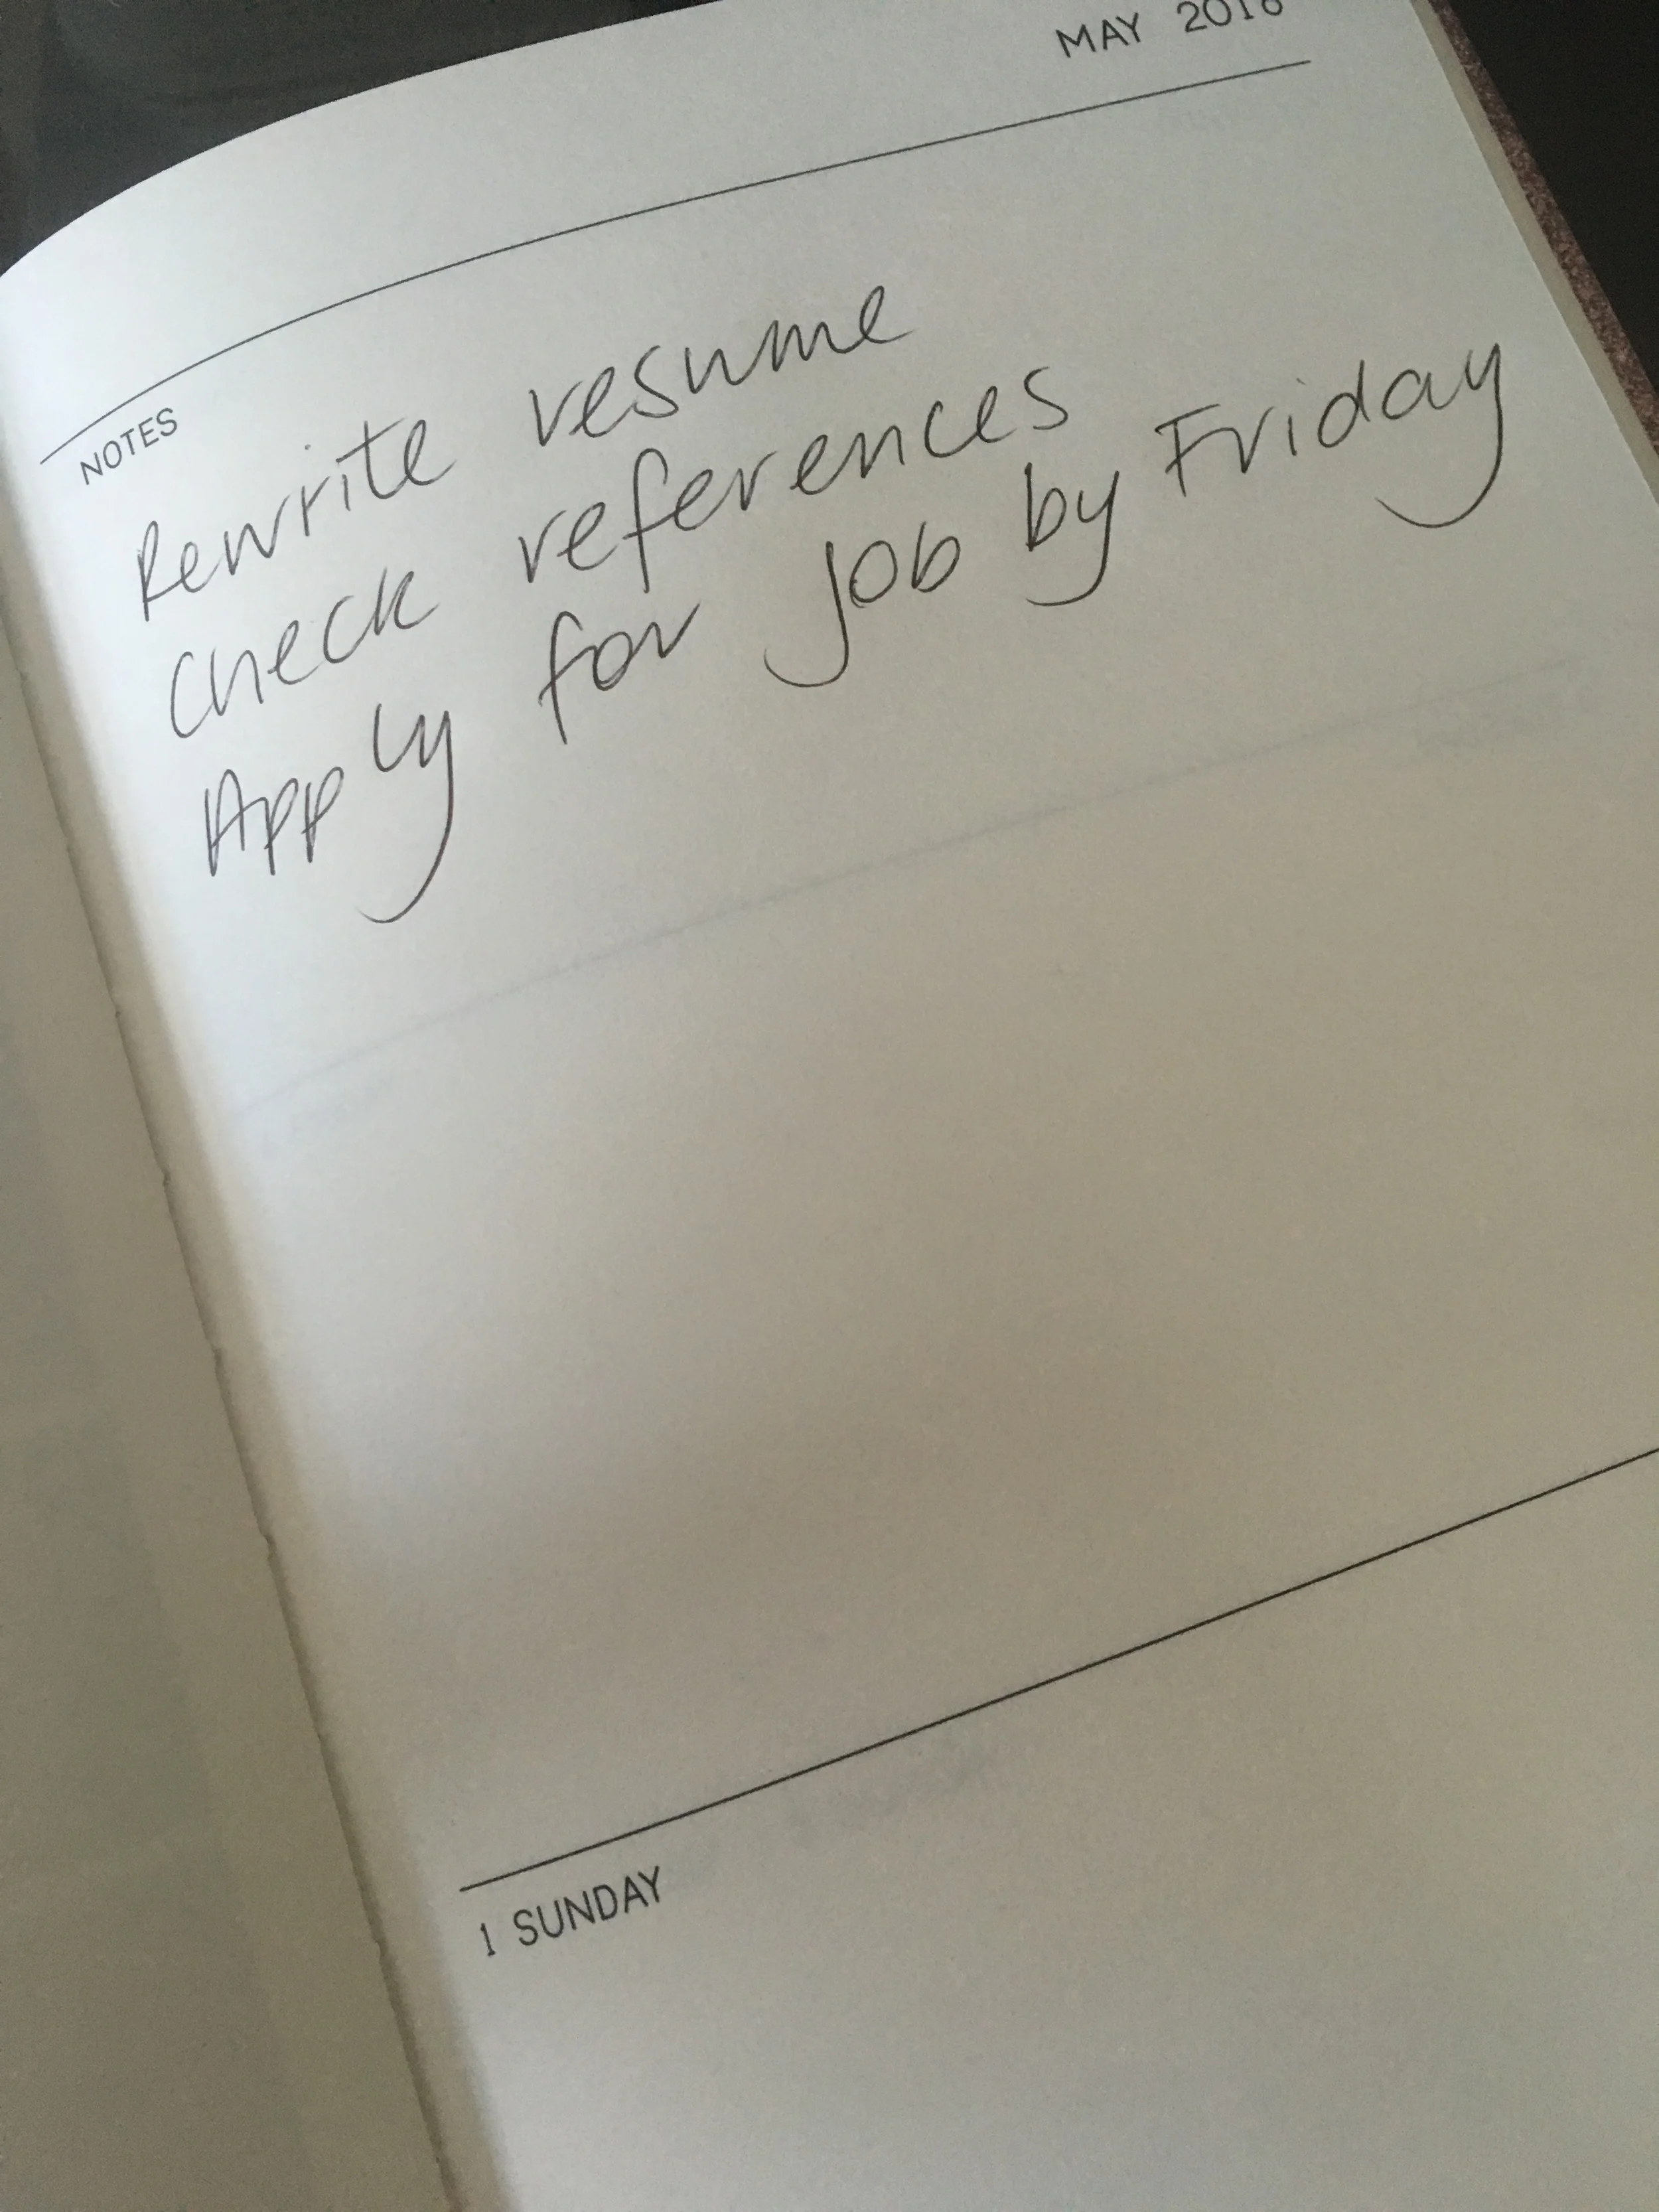 MAY 2016
NOTES
Rewrite resume
Check references
Apply for job by Friday
1 SUNDAY